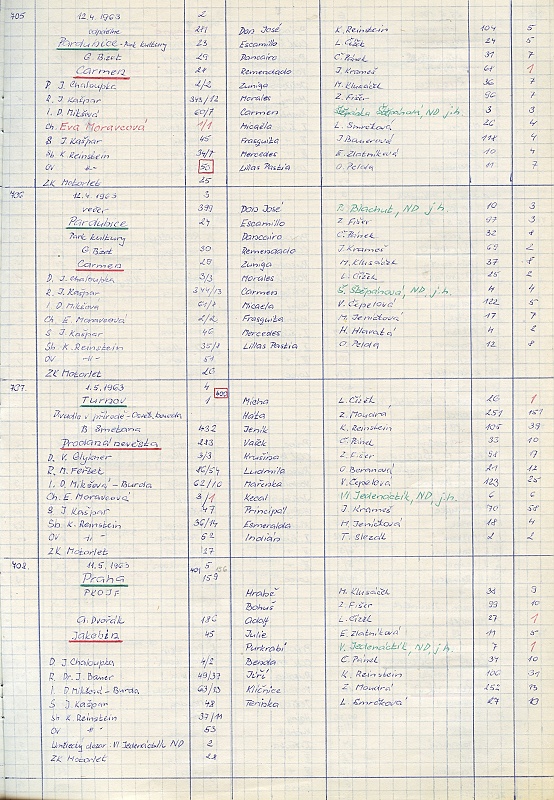 705 12.4.1963 2
odpoledne 211 Don José K. Reinstein 104 5
Pardubice - Park kultury 23 Escamillo L. Čížek 24 5
G. Bizet 29 Dancairo Č. Pánek 31 7
Carmen 28 Remendado J. Krameš 61 1
D. J. Chaloupka 2/2 Zuniga M. Klusáček 36 7
R. J. Kašpar 343/12 Morales Z. Fišer 96 7
I. D. Mikšová 60/7 Carmen Štěpánka Štěpánová, ND j.h. 3 3
Ch. Eva Moravcová 1/1 Micaela L. Smrčková 26 4
S J. Kašpar 45 Frasquita J. Bauerová 118 4
Sb. K. Reinstein 34/7 Mercedes E. Zlatníková 10 4
Ov -"- 50 Lillas Pastia O. Pelda 11 7
ZK Motorlet 25
406 12.4.1963 3
večer 399 Don José B. Blachut, ND j.h. 10 3
Pardubice 24 Escamillo Z. Fišer 97 3
Park kultury Dancairo Č. Pánek 32 8
G. Bizet 30 Remendado J. Krameš 69 2
Carmen 29 Zuniga M. Klusáček 37 8
D. J. Chaloupka 3/3 Morales L. Čížek 25 2
R. J. Kašpar 344/13 Carmen Š. Štěpánová, ND, j.h. 4 4
I. D. Mikšová 61/7 Micaela V. Čepelová 122 5
Ch. E. Moravcová 2/2 Frasquita M. Jeničková 17 7
S J. Kašpar 46 Mercedes H. Hlavatá 4 2
Sb. K. Reinstein 35/8 Lillas Pastia O. Pelda 12 8
OV -"- 51
ZK Motorlet 26
707. 1.5.1963 4
Turnov 1 400 Mícha L. Čížek 26 1
Divadlo v přírodě - Osvět. beseda Háta Z. Moudrá 251 151
B Smetana 432 Jeník K. Reinstein 105 39
Prodaná nevěsta 283 Vašek Č. Pánek 33 10
D. V. 3/3 Krušina Z. Fišer 98 17
R. M. Feřbek 86/54 Ludmila O Boranová 21 12
I. D. Mikšová - Burda 62/10 Mařenka V. Čepelová 123 25
Ch. E. Moravcová 3/1 Kecal Vl Jedenáctík, ND, j.h. 6 6
S J. Kašpar 47 Principál J. Krameš 70 58
Sb. K. Reinstein 36/14 Esmeralda M. Jeničková 18 4
Ov -"- 52 Indián T. Slezák 2 2
ZK Motorlet 27
408. 11.5.1963 401 5 156
Praha 159
PKOJF Hrabě M. Klusáček 38 9
Bohuš Z. Fišer 99 10
A. Dvořák 186 Adolf L. Čížek 27 1
Jakobín 45 Julie E. Zlatníková 11 5
Purkrabí V. Jedenáctík, ND, j.h. 7 1
D J. Chaloupka 4/2 Benda Č. Pánek 34 10
R. Dr. J. Bauer 49/37 Jiří K. Reinstein 106 31
I. D. Mikšová - Burda 63/23 Klíčnice Z. Moudrá 252 13
S J. Kašpar 48 Terinka L. Smrčková 27 10
Sb K. Reinstein 37/11
Ov -"- 53
Umělecký dozor - Vl Jedenáctík ND 2
ZK Motorlet 28